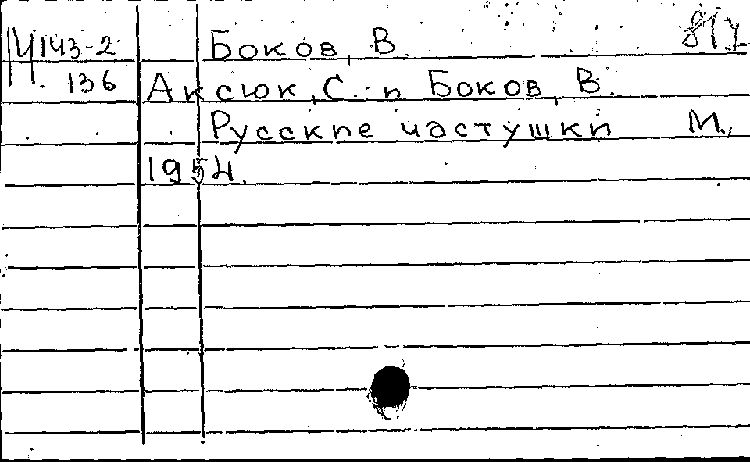 М143-2 Боков, В.
136 Аксюк, С. и Боков, В.
Русские частушки М.,
1954.